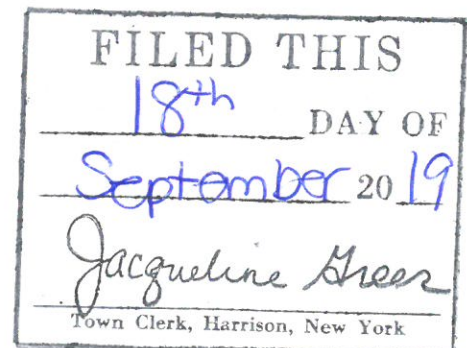 FILED THIS
18th DAY OF
September 20 19
Jacqueline Greer
Town Clerk, Harrison, New York